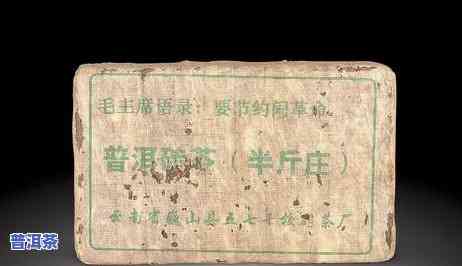 毛主席语录：要节约闹革命
普洱砖茶（半斤庄）
云南省巍山县五七干校茶厂
普洱茶